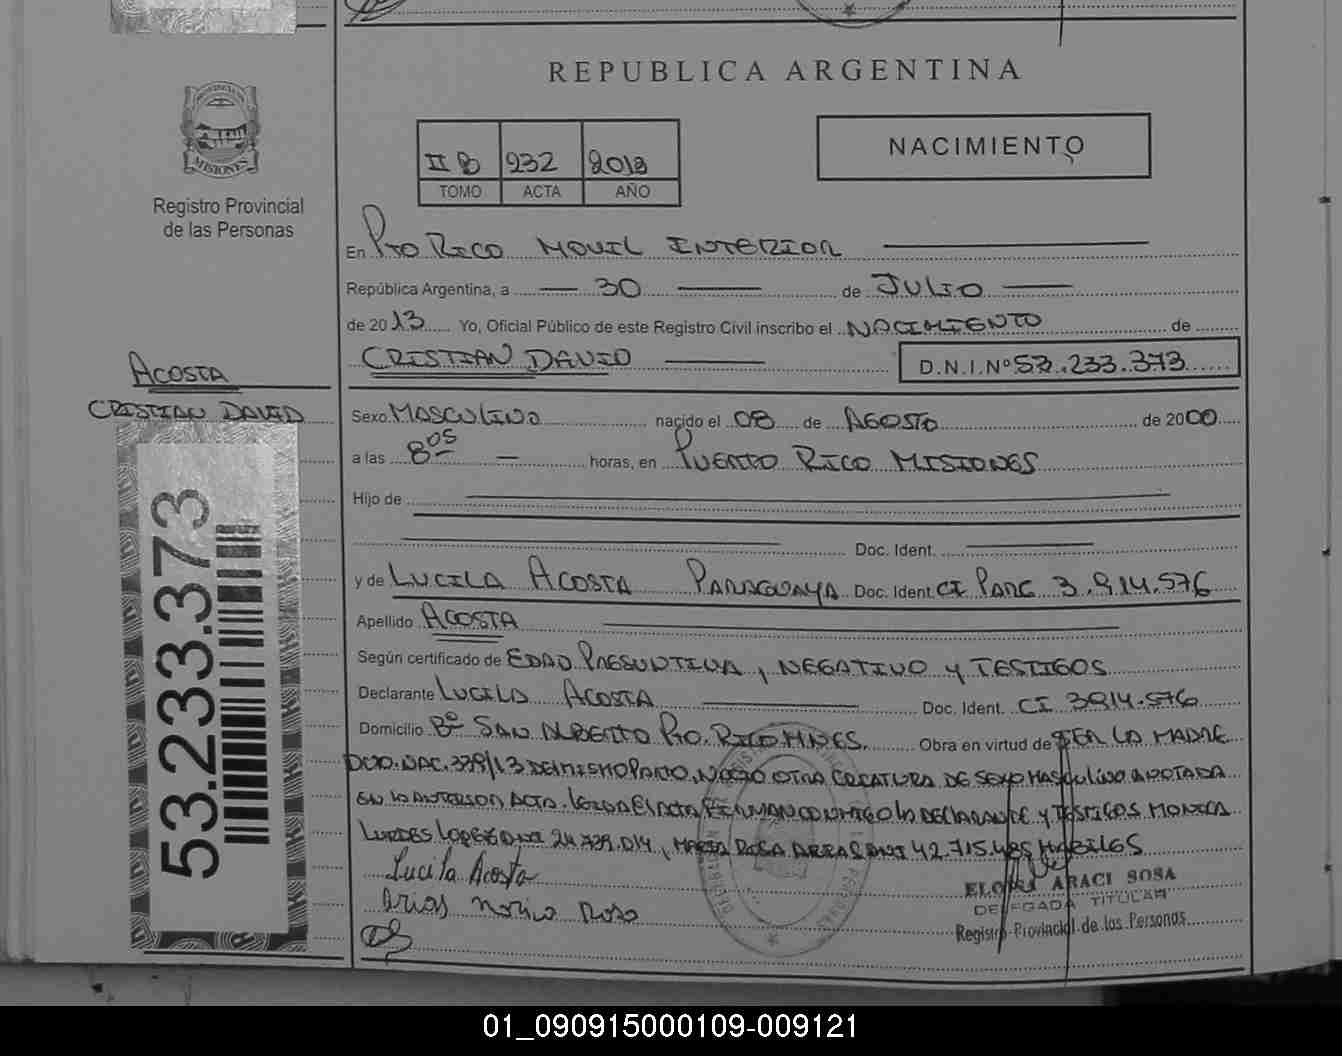 REPUBLICA ARGENTINA
MISIONES
Registro Provincial
de las Personas
II B 232 2013
TOMO ACTA AÑO
NACIMIENTO
En Pto Rico Movil Interior
República Argentina, a 30 de Julio
de 2013 Yo, Oficial Público de este Registro Civil inscribo el NACIMIENTO de
CRISTIAN DAVID D.N.I.Nº 53.233.373
ACOSTA
CRISTIAN DAVID
53.233.373
Sexo MASCULINO nacido el 08 de AGOSTO de 2000
a las 8 05 horas, en PUERTO RICO MISIONES
Hijo de
Doc. Ident.
y de LUCILA ACOSTA PARAGUAYA Doc. Ident CI PARG 3.914.576
Apellido ACOSTA
Según certificado de EDAD PRESUNTIVA, NEGATIVO Y TESTIGOS
Declarante LUCILA ACOSTA Doc. Ident. CI 3914.576
Domicilio Bº SAN ALBERTO Pto. RICO MNES. Obra en virtud de SER LA MADRE
DEL MISMO PARTO, NACIO OTRA CREATURA DE SEXO MASCULINO ANOTADA
EN LA ANTERIOR ACTA. LEIDA EL ACTA FIRMAN CONMIGO LA DECLARANTE Y TESTIGOS MONICA
LURDES LOPEZ DNI 24.739.014, MARIA ROSA ARIAS DNI 42.715.485 HABILES
Lucila Acosta
Arias Maria Rosa
ARACI SOSA
DELEGADA TITULAR
Registro Provincial de las Personas
01_090915000109-009121